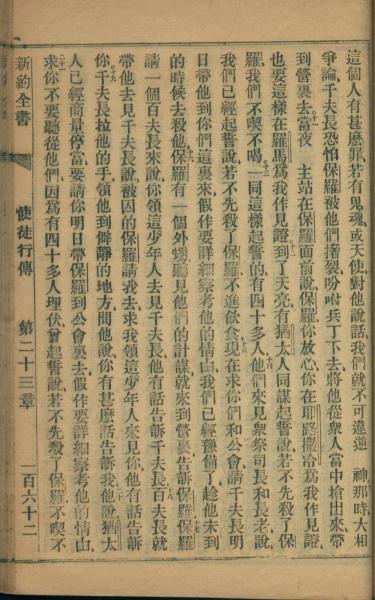 這個人有甚麽罪、若有鬼魂、或天使、對他說話、我們就不可違逆 神那時大相
爭論、千夫長恐怕保羅被他們撦裂、吩咐兵丁下去、將他從衆人當中搶出來、帶
到營裏去。十一當夜 主站在保羅面前說、保羅你放心、你在耶路撒冷爲我作見證、
也要這樣在羅馬爲我作見證。十二到了天亮、有猶太人同謀起誓說、若不先殺了保
羅、我們不喫不喝、十三一同這樣起誓的、有四十多人、十四他們來見衆祭司長和長老說、
我們已經起誓說、若不先殺了保羅、不進飲食、十五現在求你們和公會請千夫長、明
日帶他到你們這裏來、假作要詳細察考他的情由、我們已經豫備了、趁他未到
的時候去殺他。十六保羅有一個外甥、聽見他們的計謀、就來到營裏告訴保羅、十七保羅
請一個百夫長來說、你領這少年人去見千夫長、他有話告訴千夫長、十八百夫長就
帶他去見千夫長說、被囚的保羅、請我去求我領這少年人來見你、他有話告訴
你、十九千夫長拉他的手、領他到僻靜的地方、問他說、你有甚麽話告訴我、二十他說、猶太
人已經商量停當、要請你明日帶保羅到公會裏去、假作要詳細察考他的情由、
二十一求你不要聽從他們、因爲有四十多人埋伏、曾起誓說、若不先殺了保羅、不喫不
新約全書 使徒行傳 第二十三章 一百六十二